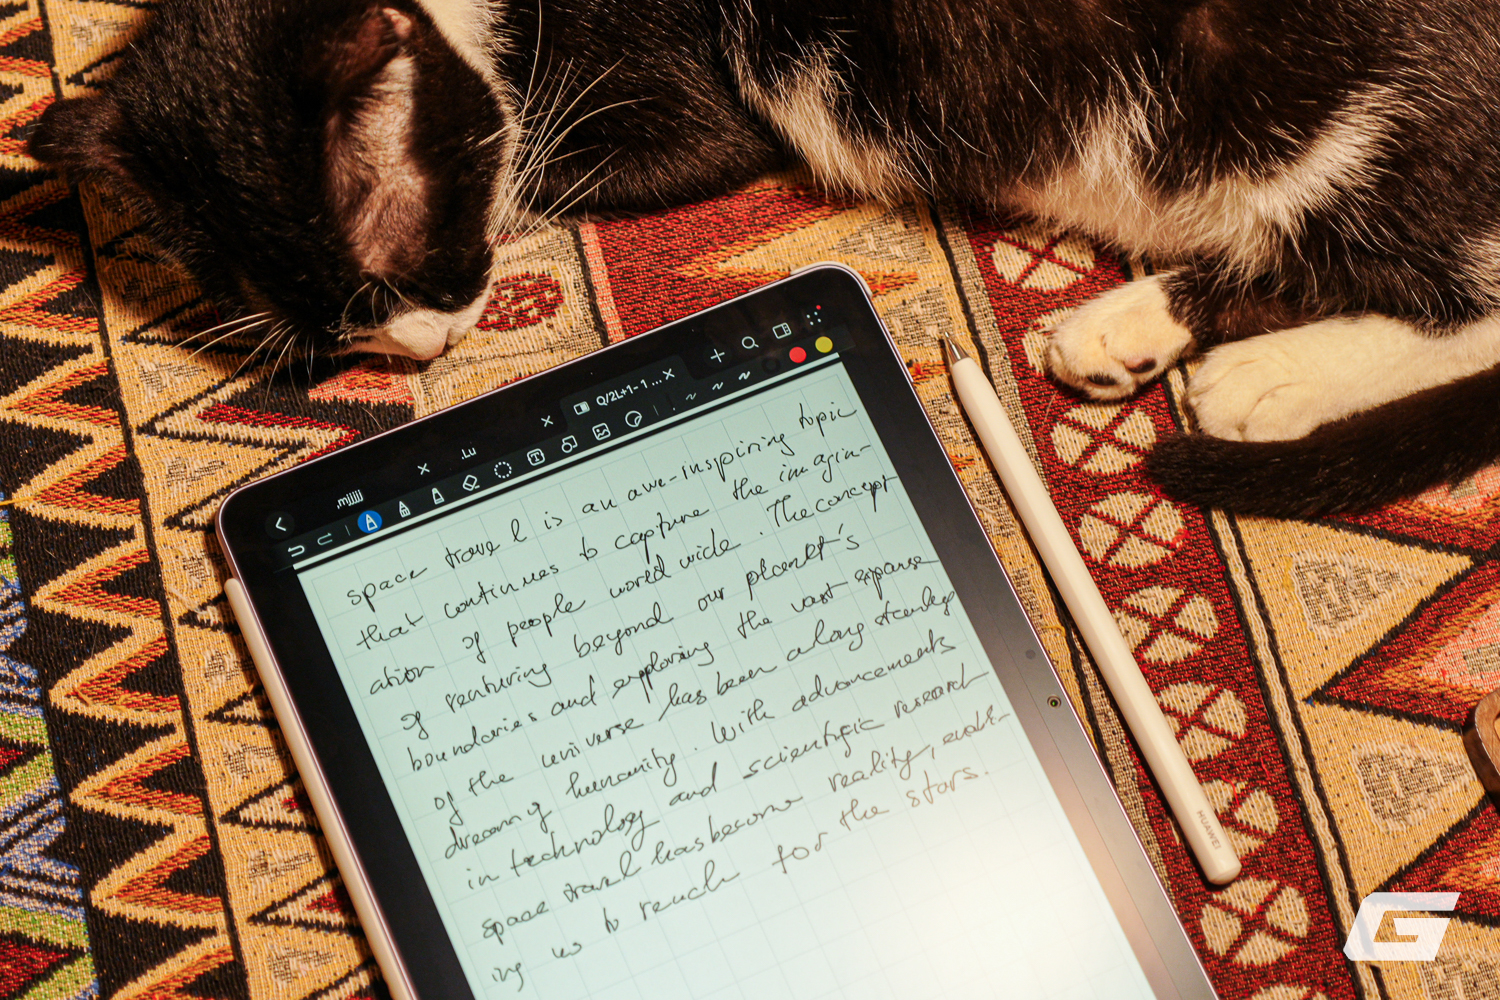 .mjjjj
.Lu
Q/2L+1-1 ...
space travel is an awe-inspiring topic
that continues to capture the imagin-
ation of people world wide. The concept
of venturing beyond our planet's
boundaries and exploring the vast expanse
of the universe has been a long standing
dream of humanity. With advancements
in technology and scientific research
space travel has become reality, enabl-
ing us to reach for the stars.
HUAWEI
G